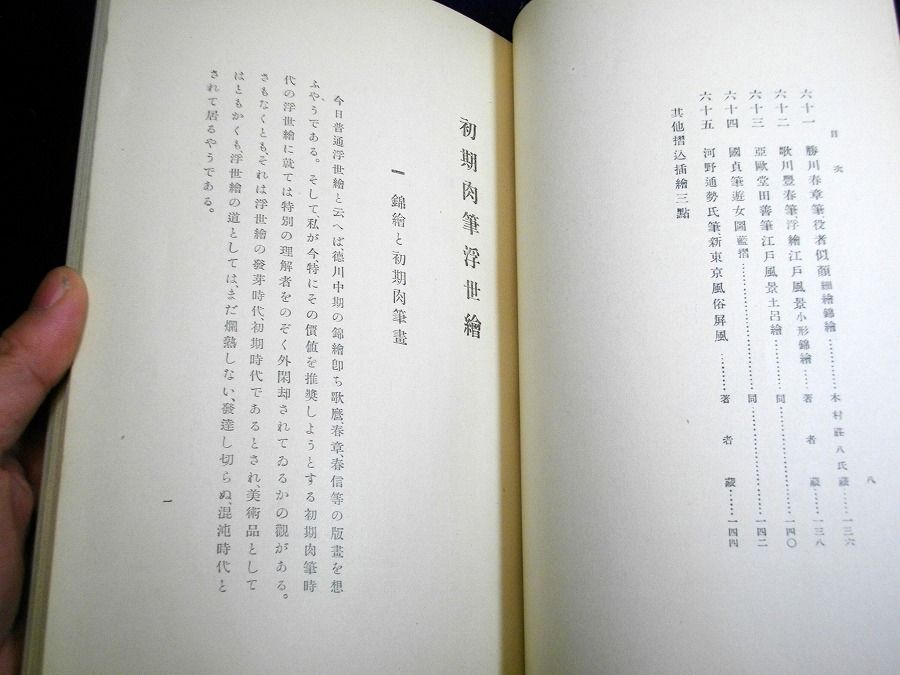 目次
八
六十一 勝川春章筆役者似顏細繪錦繪………木村莊八氏藏……一三六
六十二 歌川豐春筆浮繪江戸風景小形錦繪………著者藏……一三八
六十三 亞歐堂田善筆江戸風景土呂繪………同………一四〇
六十四 國貞筆遊女圖藍摺………同………一四二
六十五 河野通勢氏筆新東京風俗屏風………著者藏……一四四
其他摺込插繪三點
初期肉筆浮世繪
一 錦繪と初期肉筆畫
今日普通浮世繪と云へば德川中期の錦繪卽ち歌麿、春章、春信等の版畫を想
ふやうである。そして私が今特にその價値を推奬しようとする初期肉筆時
代の浮世繪に就ては特別の理解者をのぞく外閑却されてゐるかの觀がある。
さもなくとも、それは浮世繪の發芽時代、初期時代であるとされ、美術品として
はともかくも、浮世繪の道としては、まだ爛熟しない、發達し切らぬ、混沌時代と
されて居るやうである。
一